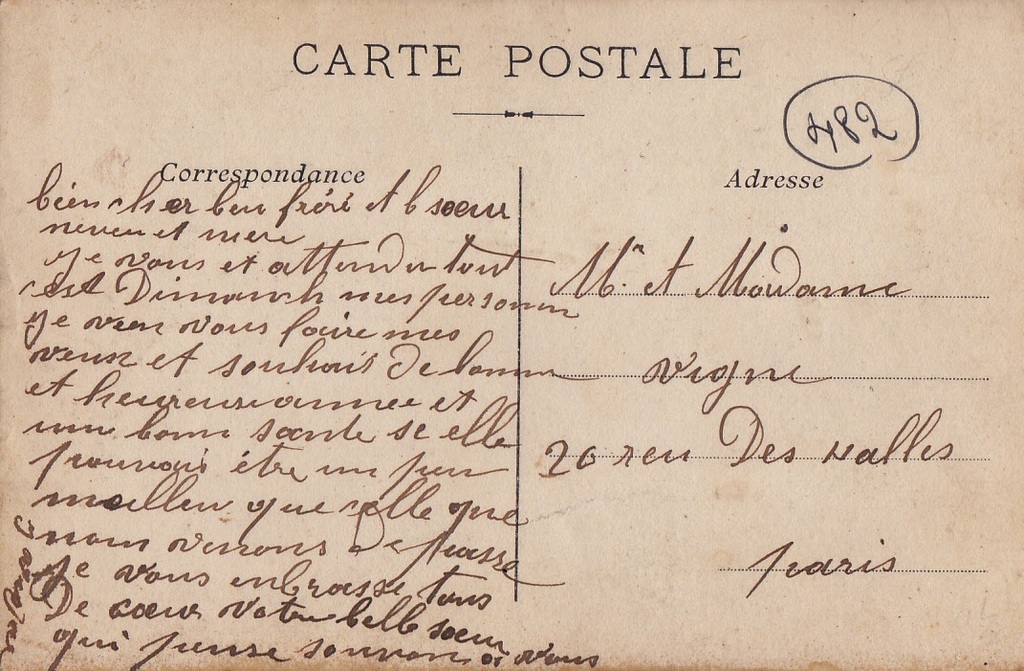 CARTE POSTALE
482
Correspondance
bien cher beu frére et b soeur
neveu et mere
je vous et attendu tout
cest Dimanch mes personn
je vien vous faire mes
veux et souhait De bonn
et heureuse annee et
une bonn sante se elle
pouvais étre un peu
meilleu que celle que
nous venons De passé
je vous enbrasse tous
De coeur votre belle soeur
qui pense souvan a vous
Adresse
Mr. et Madame
vigne
20 reu Des valles
paris